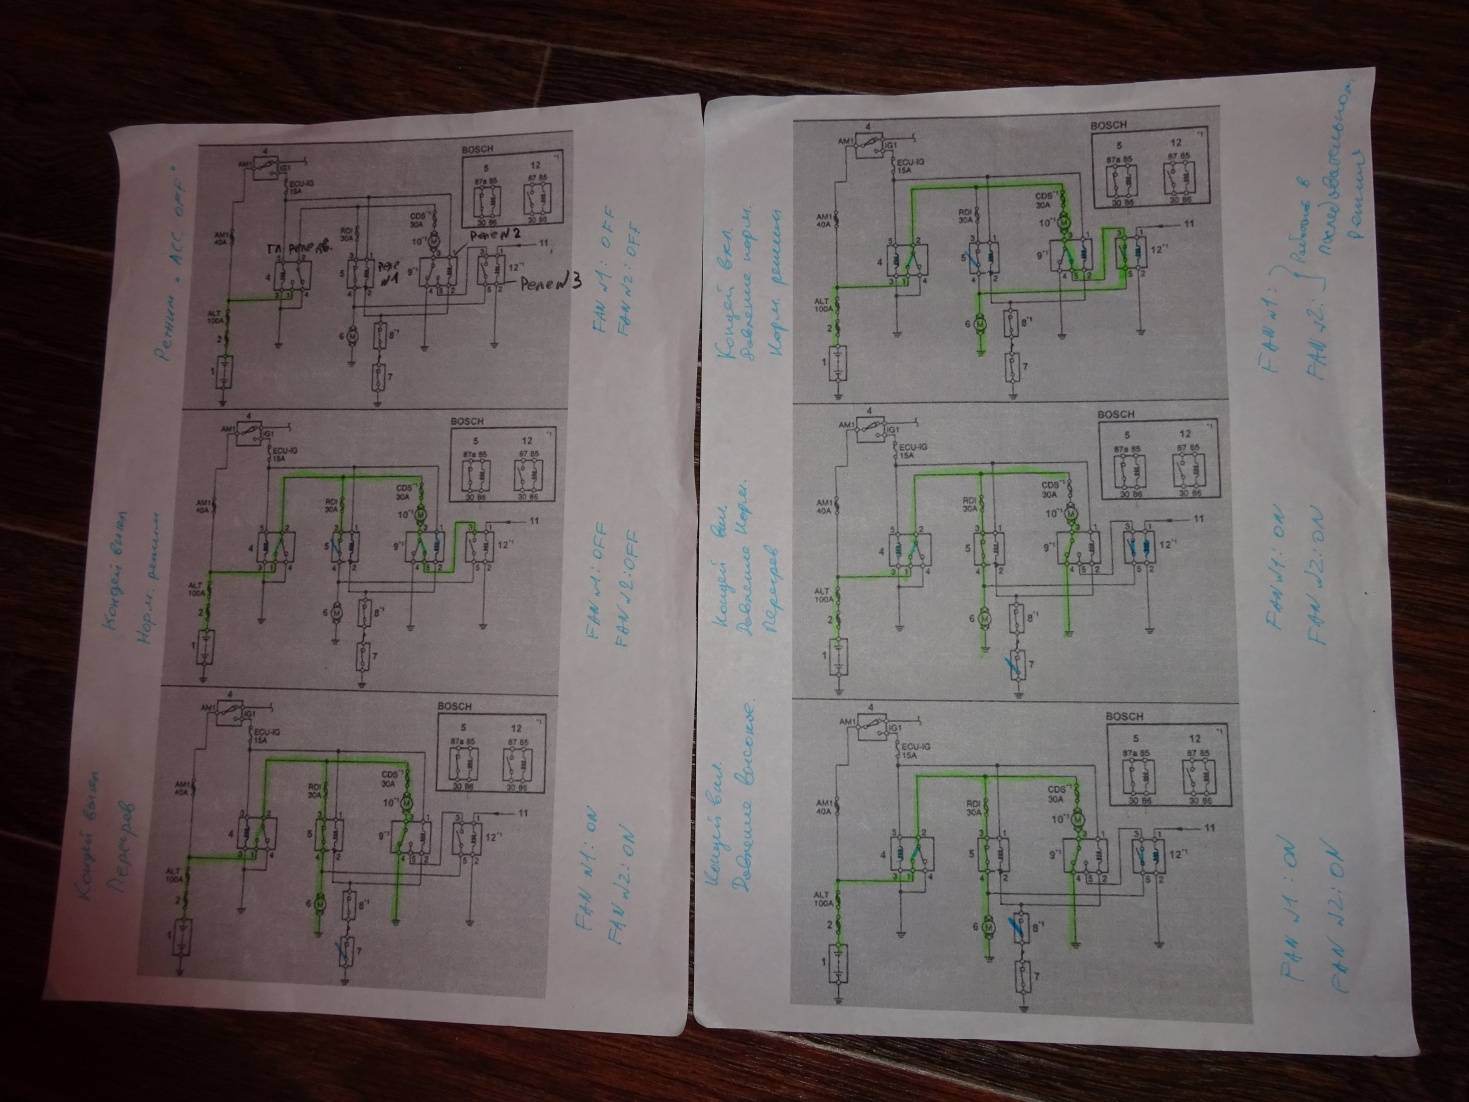 Режим "ACC OFF"
4
AM1
IG1
ECU-IG
15A
BOSCH
5
12
*1
87a 85
87 85
30 86
30 86
AM1
40A
ALT
100A
2
1
Гл реле дв.
4
5
2
3
1
4
RDI
30A
5
Реле
N1
6
8*1
7
CDS*1
30A
10*1
Реле N2
9*1
11
12*1
Реле N3
FAN N1: OFF
FAN N2: OFF
Кондей выкл
Норм. режим
4
AM1
IG1
ECU-IG
15A
BOSCH
5
12
*1
87a 85
87 85
30 86
30 86
AM1
40A
ALT
100A
2
1
4
RDI
30A
5
6
8*1
7
CDS*1
30A
10*1
9*1
11
12*1
FAN N1: OFF
FAN N2: OFF
Кондей выкл
Перегрев
4
AM1
IG1
ECU-IG
15A
BOSCH
5
12
*1
87a 85
87 85
30 86
30 86
AM1
40A
ALT
100A
2
1
4
RDI
30A
5
6
8*1
7
CDS*1
30A
10*1
9*1
11
12*1
FAN N1: ON
FAN N2: ON
Кондей вкл.
Давление норм.
Норм. режим
4
AM1
IG1
ECU-IG
15A
BOSCH
5
12
*1
87a 85
87 85
30 86
30 86
AM1
40A
ALT
100A
2
1
4
RDI
30A
5
6
8*1
7
CDS*1
30A
10*1
9*1
11
12*1
FAN N1:
FAN N2:
Работа в
последовательном
режиме
Кондей вкл.
Давление норм.
Перегрев
4
AM1
IG1
ECU-IG
15A
BOSCH
5
12
*1
87a 85
87 85
30 86
30 86
AM1
40A
ALT
100A
2
1
4
RDI
30A
5
6
8*1
7
CDS*1
30A
10*1
9*1
11
12*1
FAN N1: ON
FAN N2: ON
Кондей вкл.
Давление высокое.
4
AM1
IG1
ECU-IG
15A
BOSCH
5
12
*1
87a 85
87 85
30 86
30 86
AM1
40A
ALT
100A
2
1
4
RDI
30A
5
6
8*1
7
CDS*1
30A
10*1
9*1
11
12*1
FAN N1: ON
FAN N2: ON